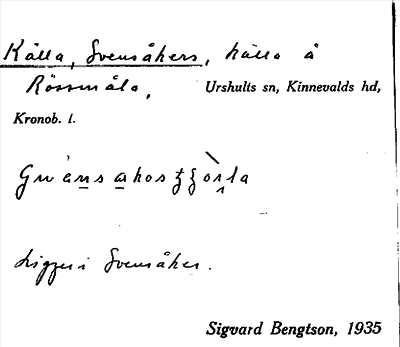 Källa, Svensåkers, källa å
Rössmåla, Urshults sn, Kinnevalds hd,
Kronob. l.
Ligger i Svensåker.
Sigvard Bengtson, 1935